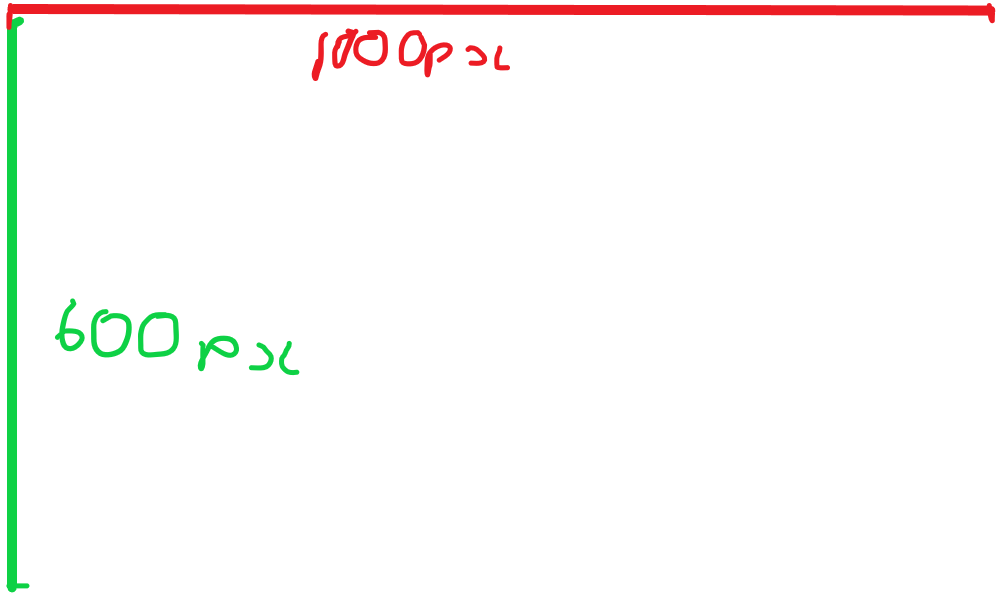 1000px
600px